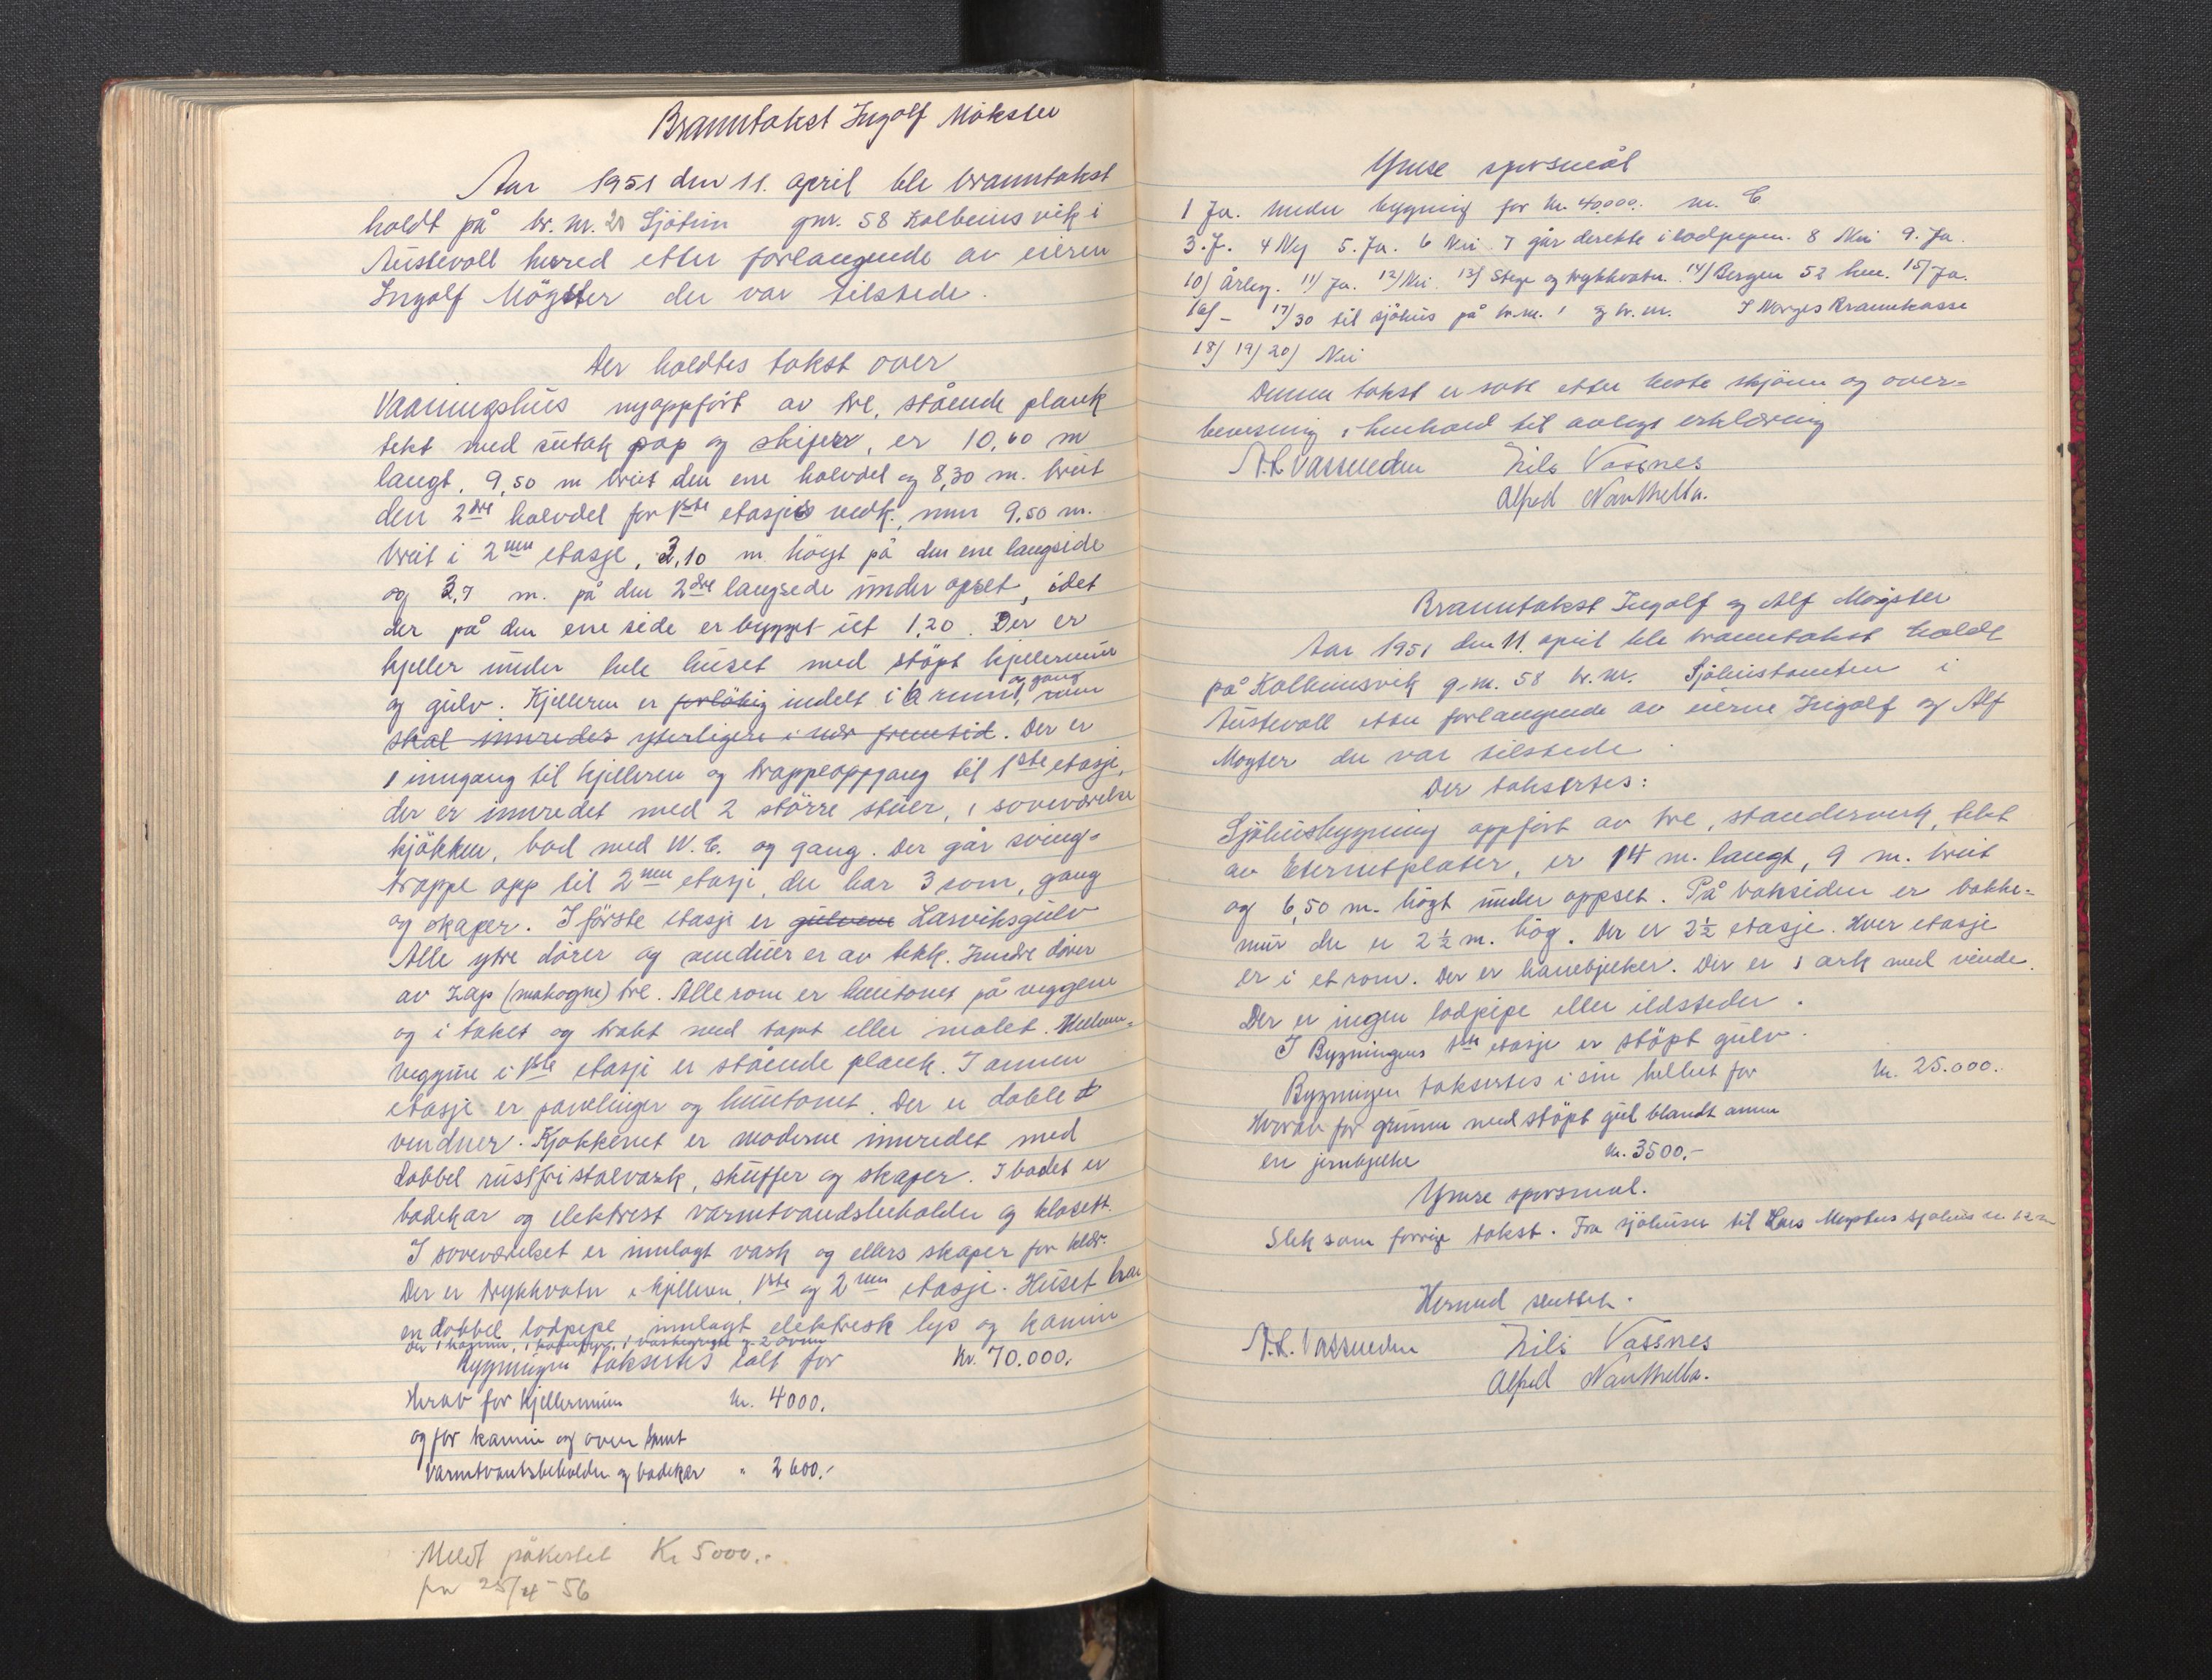 Branntakst Ingolf Møkster
Aar 1951 den 11. april ble branntakst
holdt på br. nr. 20 Sjøtun gnr. 58 Kolbeinsvik i
Austevoll herred etter forlangende av eieren
Ingolf Møgster der var tilstede.
Der holdtes takst over
Vaaningshus nyoppført av tre, stående plank
tekt med sutak pap og skifer, er 10,60 m
langt, 9,50 m breit den ene halvdel og 8,30 m. breit
den 2dre halvdel for 1ste etasjes vedk., men 9,50 m.
breit i 2nen etasje, 3,10 m høgt på den ene langside
og 3,7 m. på den 2dre langsede under opset, idet
der på den ene side er bygget ut 1,20. Der er
kjeller under hele huset med støpt kjellermur
og gulv. Kjelleren er forløbig indelt i 6 rum og gang, som
skal innredes yterligere i nær fremtid. Der er
1 inngang til kjelleren og trappeoppgang til 1ste etasje,
der er innredet med 2 større stuer, 1 soveværelse
kjøkken, bad med W.C. og gang. Der går sving-
trappe opp til 2nen etasje, der har 3 rom, gang
og skaper. I første etasje er gulvene Larviksgulv
Alle ytre dører og vinduer er av tekk. Inndre dører
av Zap (mahogne) tre. Alle rom er huntonet på veggene
og i taket og trukt med tapet eller malet. Mellem-
veggene i 1ste etasje er stående plank. I annen
etasje er panelinger og huntonet. Der er doble
vinduer. Kjøkkenet er moderne innredet med
dobbel rustfri stalvask, skuffer og skaper. I badet er
badekar og elektrest varmtvandsbeholder og klosett.
I soveværelset er innlagt vask og ellers skaper for klær.
Der er trykkvatn i kjelleren, 1ste og 2nen etasje. Huset har
en dobbel lodpepe innlagt elektresk lys og kamin
Der 1 kamin, 1 vaskegryte og 2 ovner
Bygningen taksertes ialt for Kr. 70.000.
Herav for kjellermur kr. 4000.
og for kamin og oven samt
varmtvantsbeholder og badekar " 2600.-
Meldt påkostet Kr 5000.-
pr 25/4-56
Ymse spørsmål
1 Ja. Under bygning for kr. 40.000. m. C
3. J. 4 Nej 5. Ja. 6 Nei 7 går derekte i lodpepen. 8 Nei 9. Ja.
10/ Årleg. 11/ Ja. 12/ Nei. 13/ Stege og trykkvatn. 14/ Bergen 52 km. 15/ Ja.
16/ - 17/ 30 til sjøhus på br.nr. 1 og br. nr. I Norges Brannkasse
18/ 19/ 20/ Nei
Denne takst er satt etter beste skjønn og over-
bevisning i henhold til avlagt erklæring
Nils Vassnes
Alfred
Branntakst Ingolf og Alf Møgster
Aar 1951 den 11. april ble branntakst holdt
på Kolbeinsvik g.nr. 58 br. nr. Sjøhustomten i
Austevoll etter forlangende av eierne Ingolf og Alf
Møgster der var tilstede.
Der taksertes:
Sjøhusbygning oppført av tre, standerverk, tekt
av Eternetplater, er 14 m. langt, 9 m. breit
og 6,50 m. høgt under oppset. På baksiden er bakke-
mur der er 2½ m. høg. Der er 2½ etasje. Hver etasje
er i et rom. Der er hanebjelker. Der er 1 ark med vinde.
Der er ingen lodpipe eller ildsteder.
I Bygningens 1ste etasje er støpt gulv.
Bygningen taksertes i sin hellhet for kr. 25.000.
Herav for grunn med støpt gul blandt annen
en jernbjelke kr. 3500.-
Ymse spørsmål.
Slek som forrige takst. Fra sjøhuset til Lars Møgsters sjøhus er 12 m
Hermed sluttet.
Nils Vassnes
Alfred